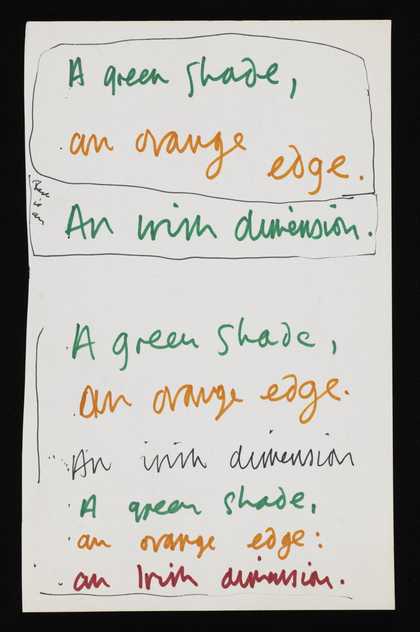 A green shade,
an orange edge.
There is an
An irish dimension.
A green shade,
an orange edge.
An irish dimension
A green shade,
an orange edge:
an Irish dimension.